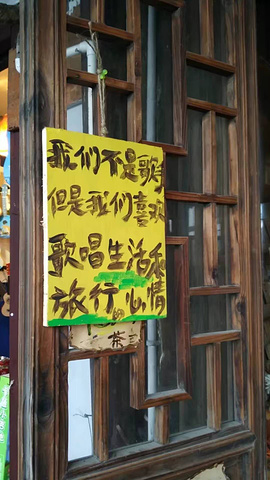 我们不是歌手
但是我们喜欢
歌唱生活和
旅行的心情
茶